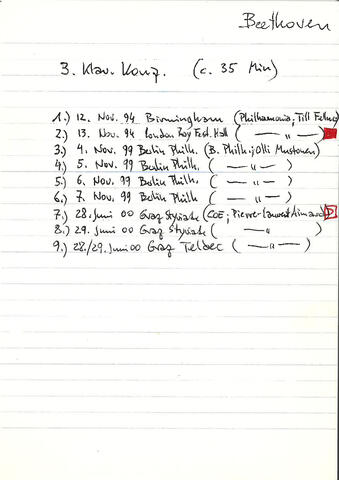 Beethoven
3. Klav. Konz. (c. 35 Min)
1.) 12. Nov. 94 Birmingham (Philharmonia; Till Fellner)
2.) 13. Nov. 94 London Roy Fest. Hall (—〃—)
3.) 4. Nov. 99 Berlin Philh. (B. Philh.; Olli Mustonen)
4.) 5. Nov. 99 Berlin Philh. (—〃—)
5.) 6. Nov. 99 Berlin Philh. (—〃—)
6.) 7. Nov. 99 Berlin Philh. (—〃—)
7.) 28. Juni 00 Graz Styriarte (COE; Pierre-Laurent Aimard) D
8.) 29. Juni 00 Graz Styriarte (—〃—)
9.) 28./29. Juni 00 Graz Teldec (—〃—)